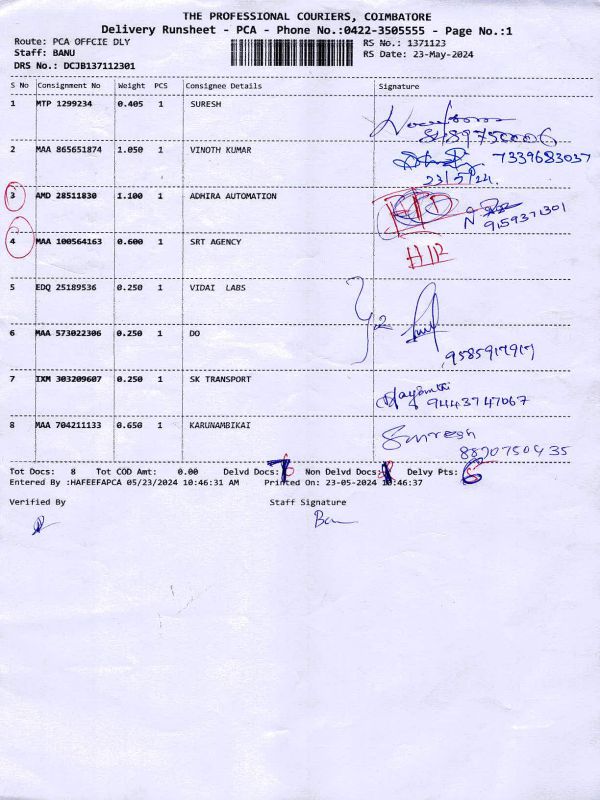 THE PROFESSIONAL COURIERS, COIMBATORE
Delivery Runsheet - PCA - Phone No.:0422-3505555 - Page No.:1
Route: PCA OFFCIE DLY RS No.: 1371123
Staff: BANU RS Date: 23-May-2024
DRS No.: DCJB137112301
S No Consignment No Weight PCS Consignee Details Signature
1 MTP 1299234 0.405 1 SURESH
2 MAA 865651874 1.050 1 VINOTH KUMAR 7339683037
23/5/24.
3 AMD 28511830 1.100 1 ADHIRA AUTOMATION
9159371301
4 MAA 100564163 0.600 1 SRT AGENCY
5 EDQ 25189536 0.250 1 VIDAI LABS
6 MAA 573022306 0.250 1 DO
9585917917
7 IXM 303209607 0.250 1 SK TRANSPORT Jayanthi
9443747067
8 MAA 704211133 0.650 1 KARUNAMBIKAI Suresh
8870750435
Tot Docs: 8 Tot COD Amt: 0.00 Delvd Docs: 7 Non Delvd Docs: 1 Delvy Pts: 6
Entered By :HAFEEFAPCA 05/23/2024 10:46:31 AM Printed On: 23-05-2024 10:46:37
Verified By Staff Signature